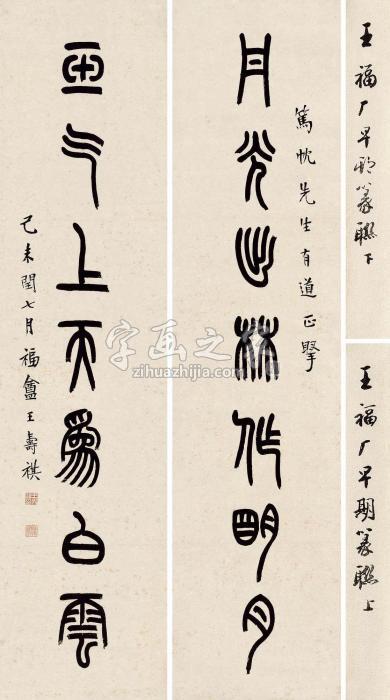 王福厂早期篆聯上
王福厂早期篆聯下
篤忱先生有道正
丹光出林作明月
气上天為白雲
己未閏七月福盦王壽祺
字画之家
zihuazhijia.com